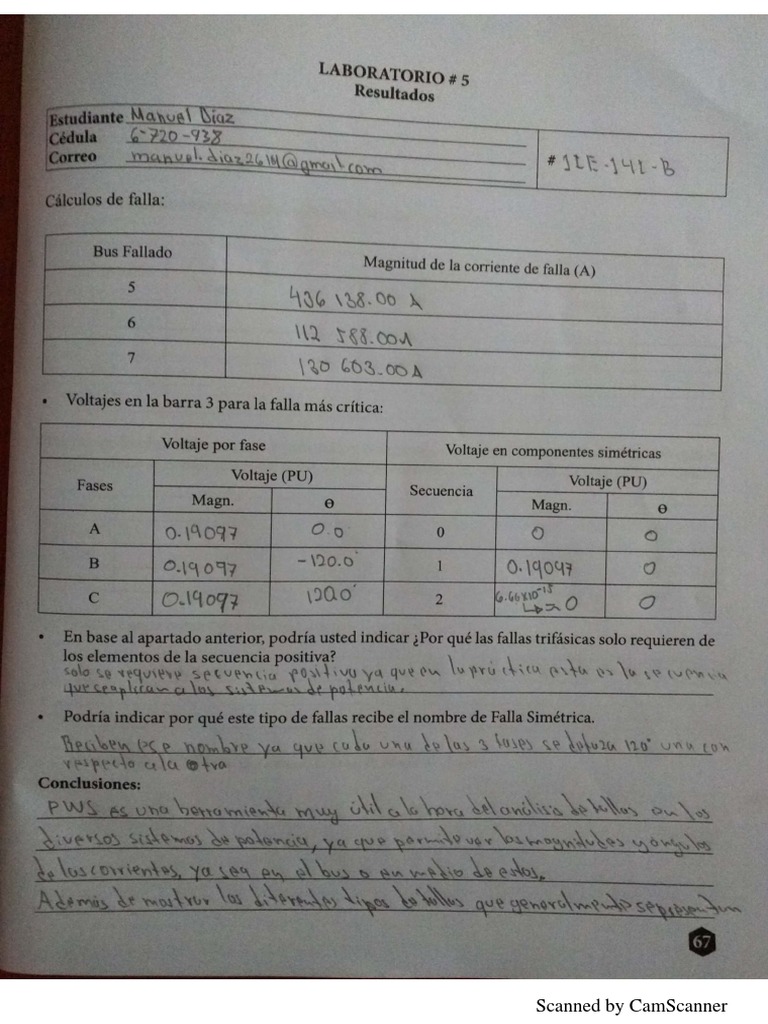 LABORATORIO # 5
Resultados
Estudiante Manuel Díaz
Cédula 6-720-938
Correo manuel.diaz2614@gmail.com
# 1IE-141-B
Cálculos de falla:
Bus Fallado Magnitud de la corriente de falla (A)
5 436 138.00 A
6 112 588.00A
7 130 603.00A
• Voltajes en la barra 3 para la falla más crítica:
Voltaje por fase Voltaje en componentes simétricas
Fases Voltaje (PU) Secuencia Voltaje (PU)
Magn. ɵ Magn. ɵ
A 0.19097 0.0° 0 0 0
B 0.19097 -120.0° 1 0.19097 0
C 0.19097 120.0° 2 6.66x10⁻¹⁵ ↳≈ 0 0
• En base al apartado anterior, podría usted indicar ¿Por qué las fallas trifásicas solo requieren de
los elementos de la secuencia positiva?
solo se requiere secuencia positiva ya que en la práctica esta es la secuencia
que se aplican a los sistemas de potencia.
• Podría indicar por qué este tipo de fallas recibe el nombre de Falla Simétrica.
Reciben ese nombre ya que cada una de las 3 fases se defaza 120° una con
respecto a la otra
Conclusiones:
PWS es una herramienta muy útil a la hora del análisis de fallas en los
diversos sistemas de potencia, ya que permite ver las magnitudes y angulos
de las corrientes, ya sea en el bus o en medio de estos.
Además de mostrar los diferentes tipos de fallas que generalmente se presentan
67
Scanned by CamScanner